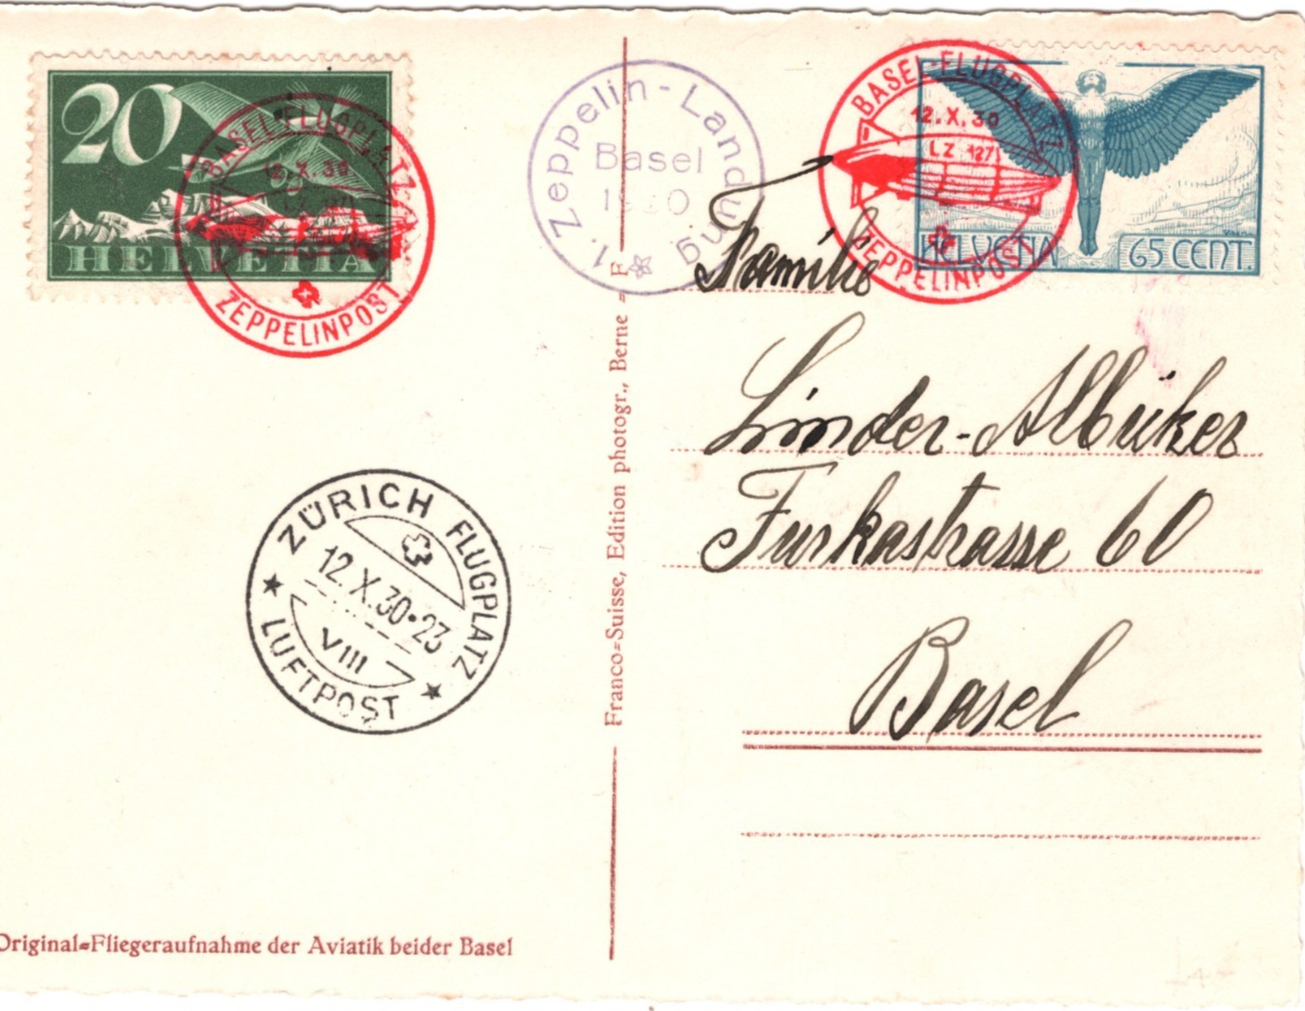 20
HELVETIA
BASEL-FLUGPLATZ
12.X.30
ZEPPELINPOST
1. Zeppelin-Landung
Basel
1930
BASEL-FLUGPLATZ
12.X.30
LZ 127
ZEPPELINPOST
HELVETIA
65 CENT.
Familie
Linder-Albiker
Furkastrasse 60
Basel
ZÜRICH FLUGPLATZ
12.X.30·23
VIII
LUFTPOST
Franco=Suisse, Edition photogr., Berne =
Original=Fliegeraufnahme der Aviatik beider Basel